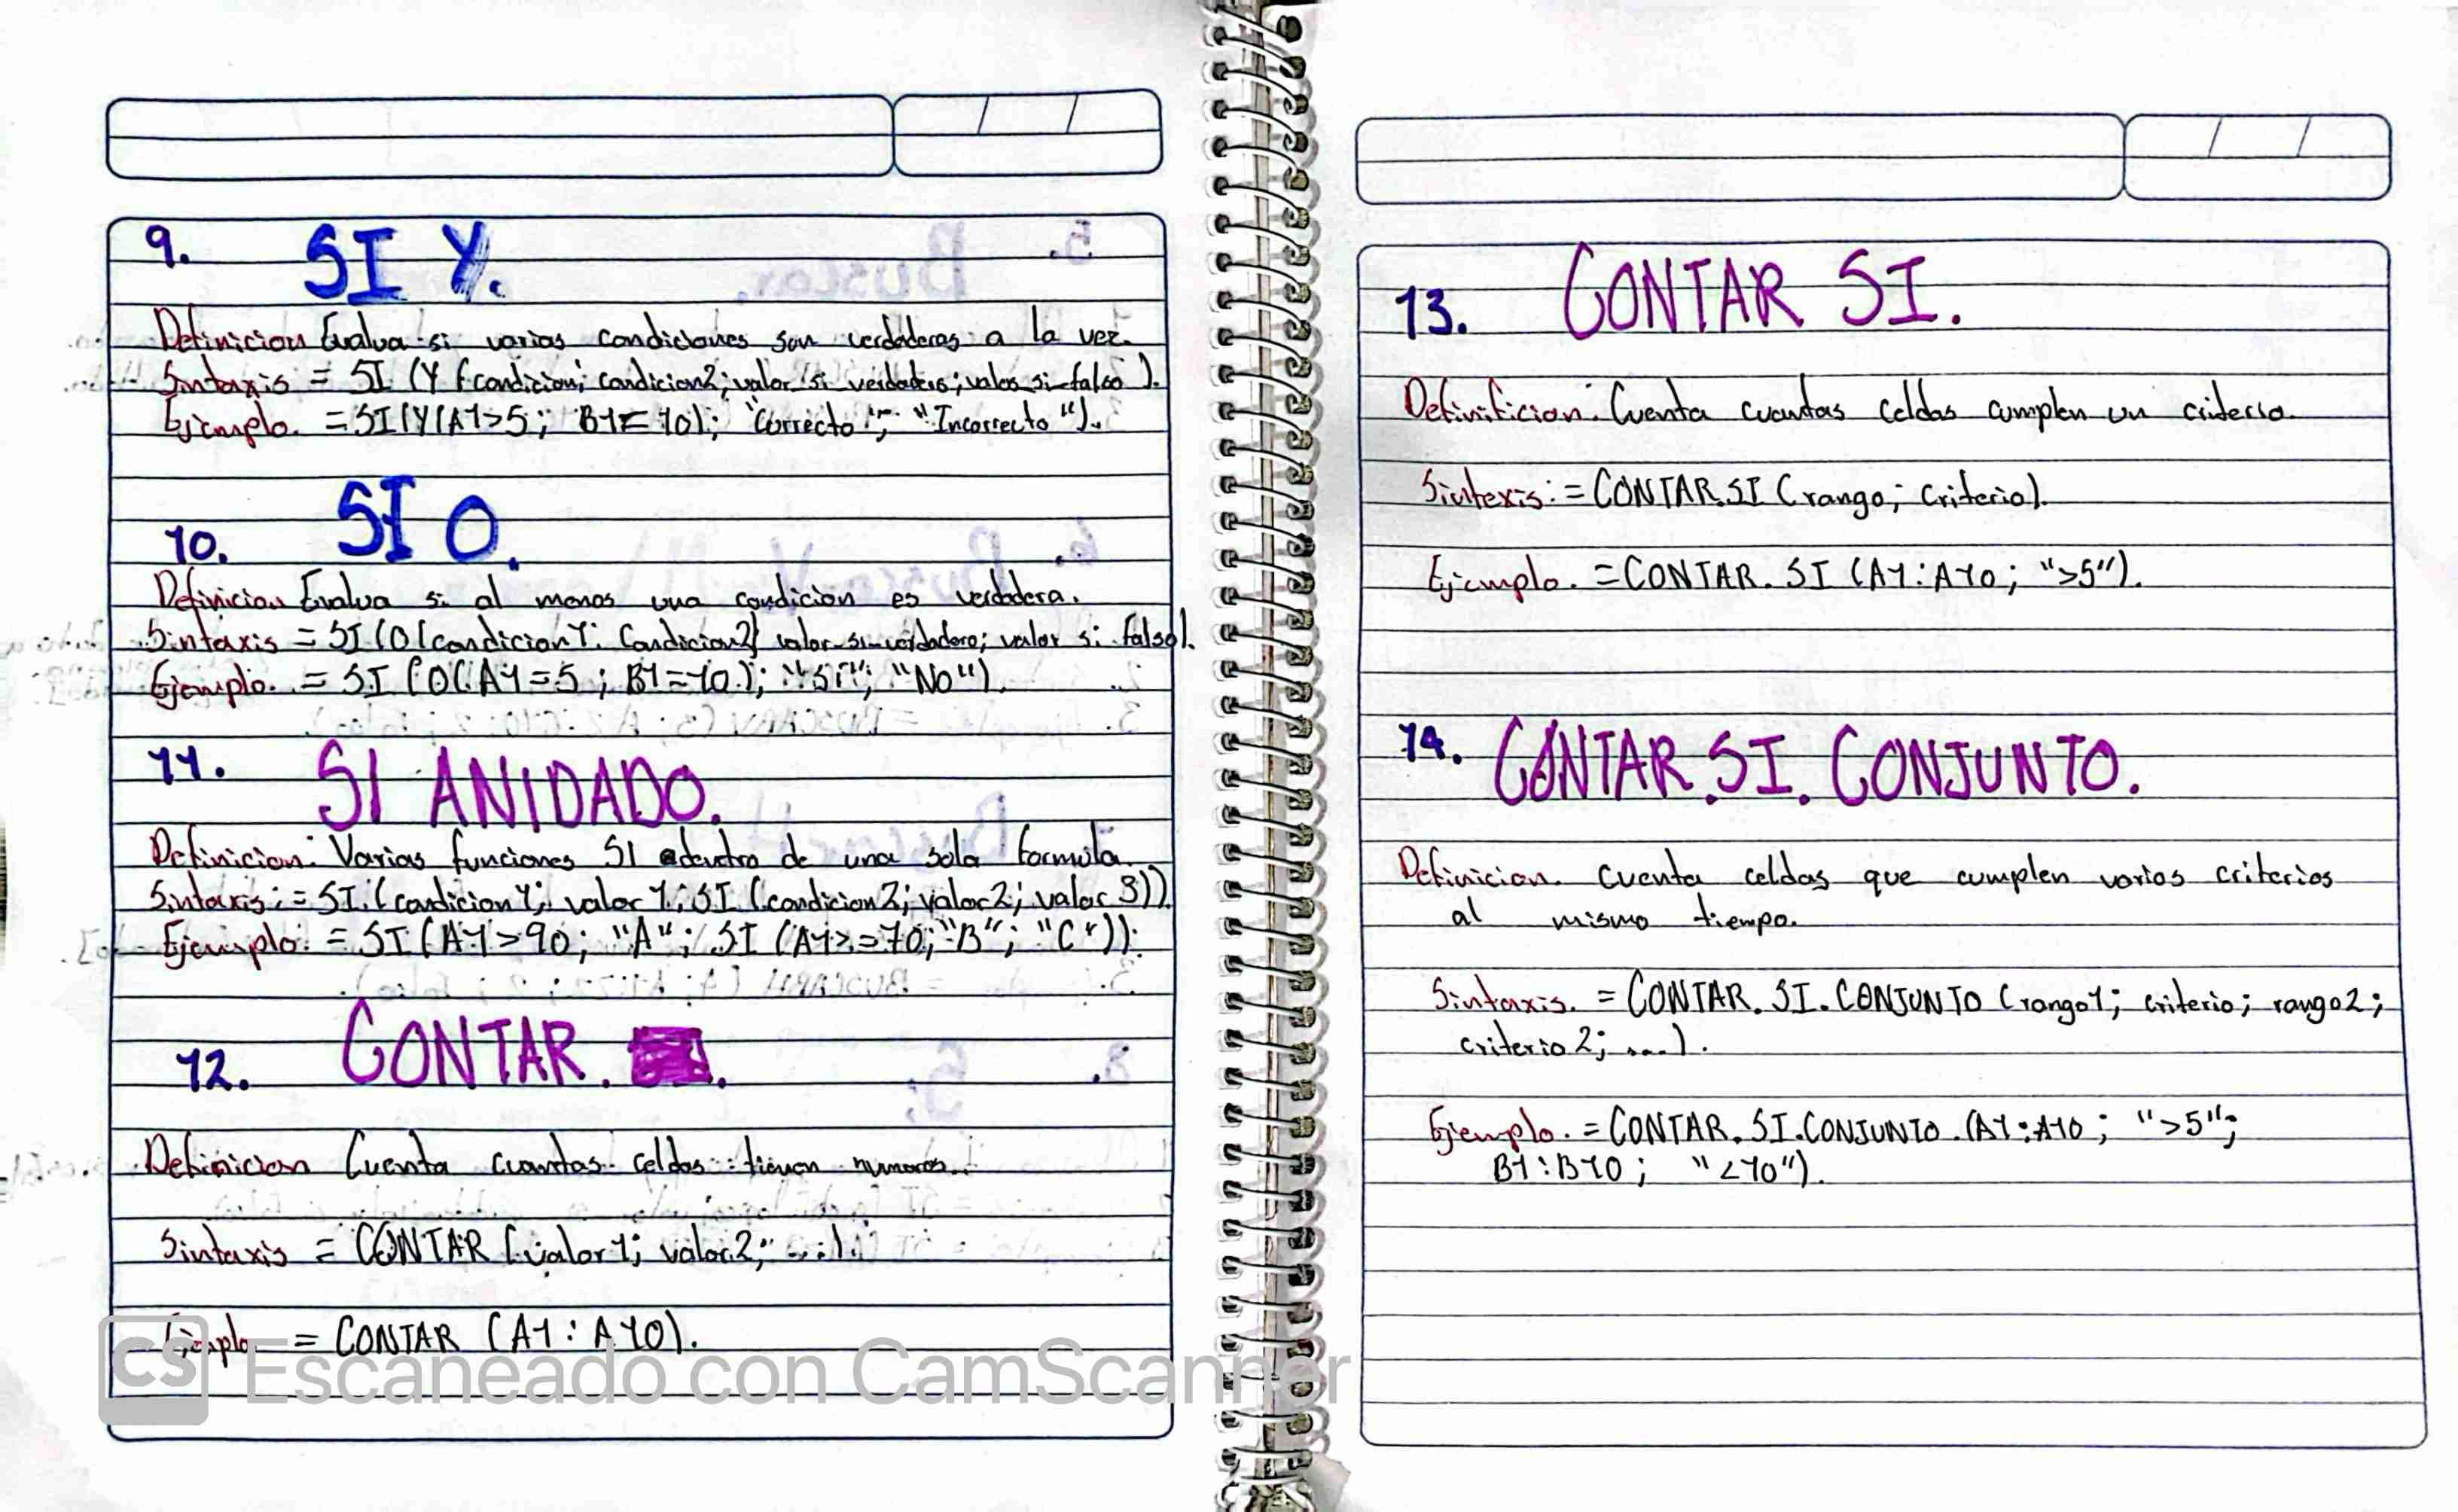 9. SI Y.
Definicion Evalua si varias condiciones son verdaderas a la vez.
Sintaxis = SI (Y (condicion; condicion2; valor si verdadero; valor si falso).
Ejemplo. =SI(Y(A1>5; B1=10); "Correcto"; "Incorrecto").
10. SI O.
Definicion Evalua si al menos una condicion es verdadera.
Sintaxis = SI (O(condicion1; Condicion2) valor si verdadero; valor si falso).
Ejemplo. = SI (O(A1=5; B1=10); "SI"; "No").
11. SI ANIDADO.
Definicion: Varias funciones SI adentro de una sola formula.
Sintaxis: = SI (condicion1; valor 1; SI (condicion2; valor2; valor 3))
Ejemplo: = SI (A1>90; "A"; SI (A1>=70; "B"; "C")).
12. CONTAR.
Definicion Cuenta cuantas celdas tienen numeros.
Sintaxis = CONTAR (valor1; valor2; ...).
Ejemplo = CONTAR (A1:A10).
CS Escaneado con CamScanner
13. CONTAR SI.
Definificion. Cuenta cuantas celdas cumplen un criterio.
Sintexis: = CONTAR.SI (rango; criterio).
Ejemplo. =CONTAR.SI (A1:A10; ">5").
14. CONTAR.SI.CONJUNTO.
Definicion. Cuenta celdas que cumplen varios criterios
al mismo tiempo.
Sintaxis. = CONTAR.SI.CONJUNTO (rango1; criterio; rango2;
criterio2; ....).
Ejemplo. = CONTAR.SI.CONJUNTO.(A1:A10; ">5";
B1:B10; "<10").